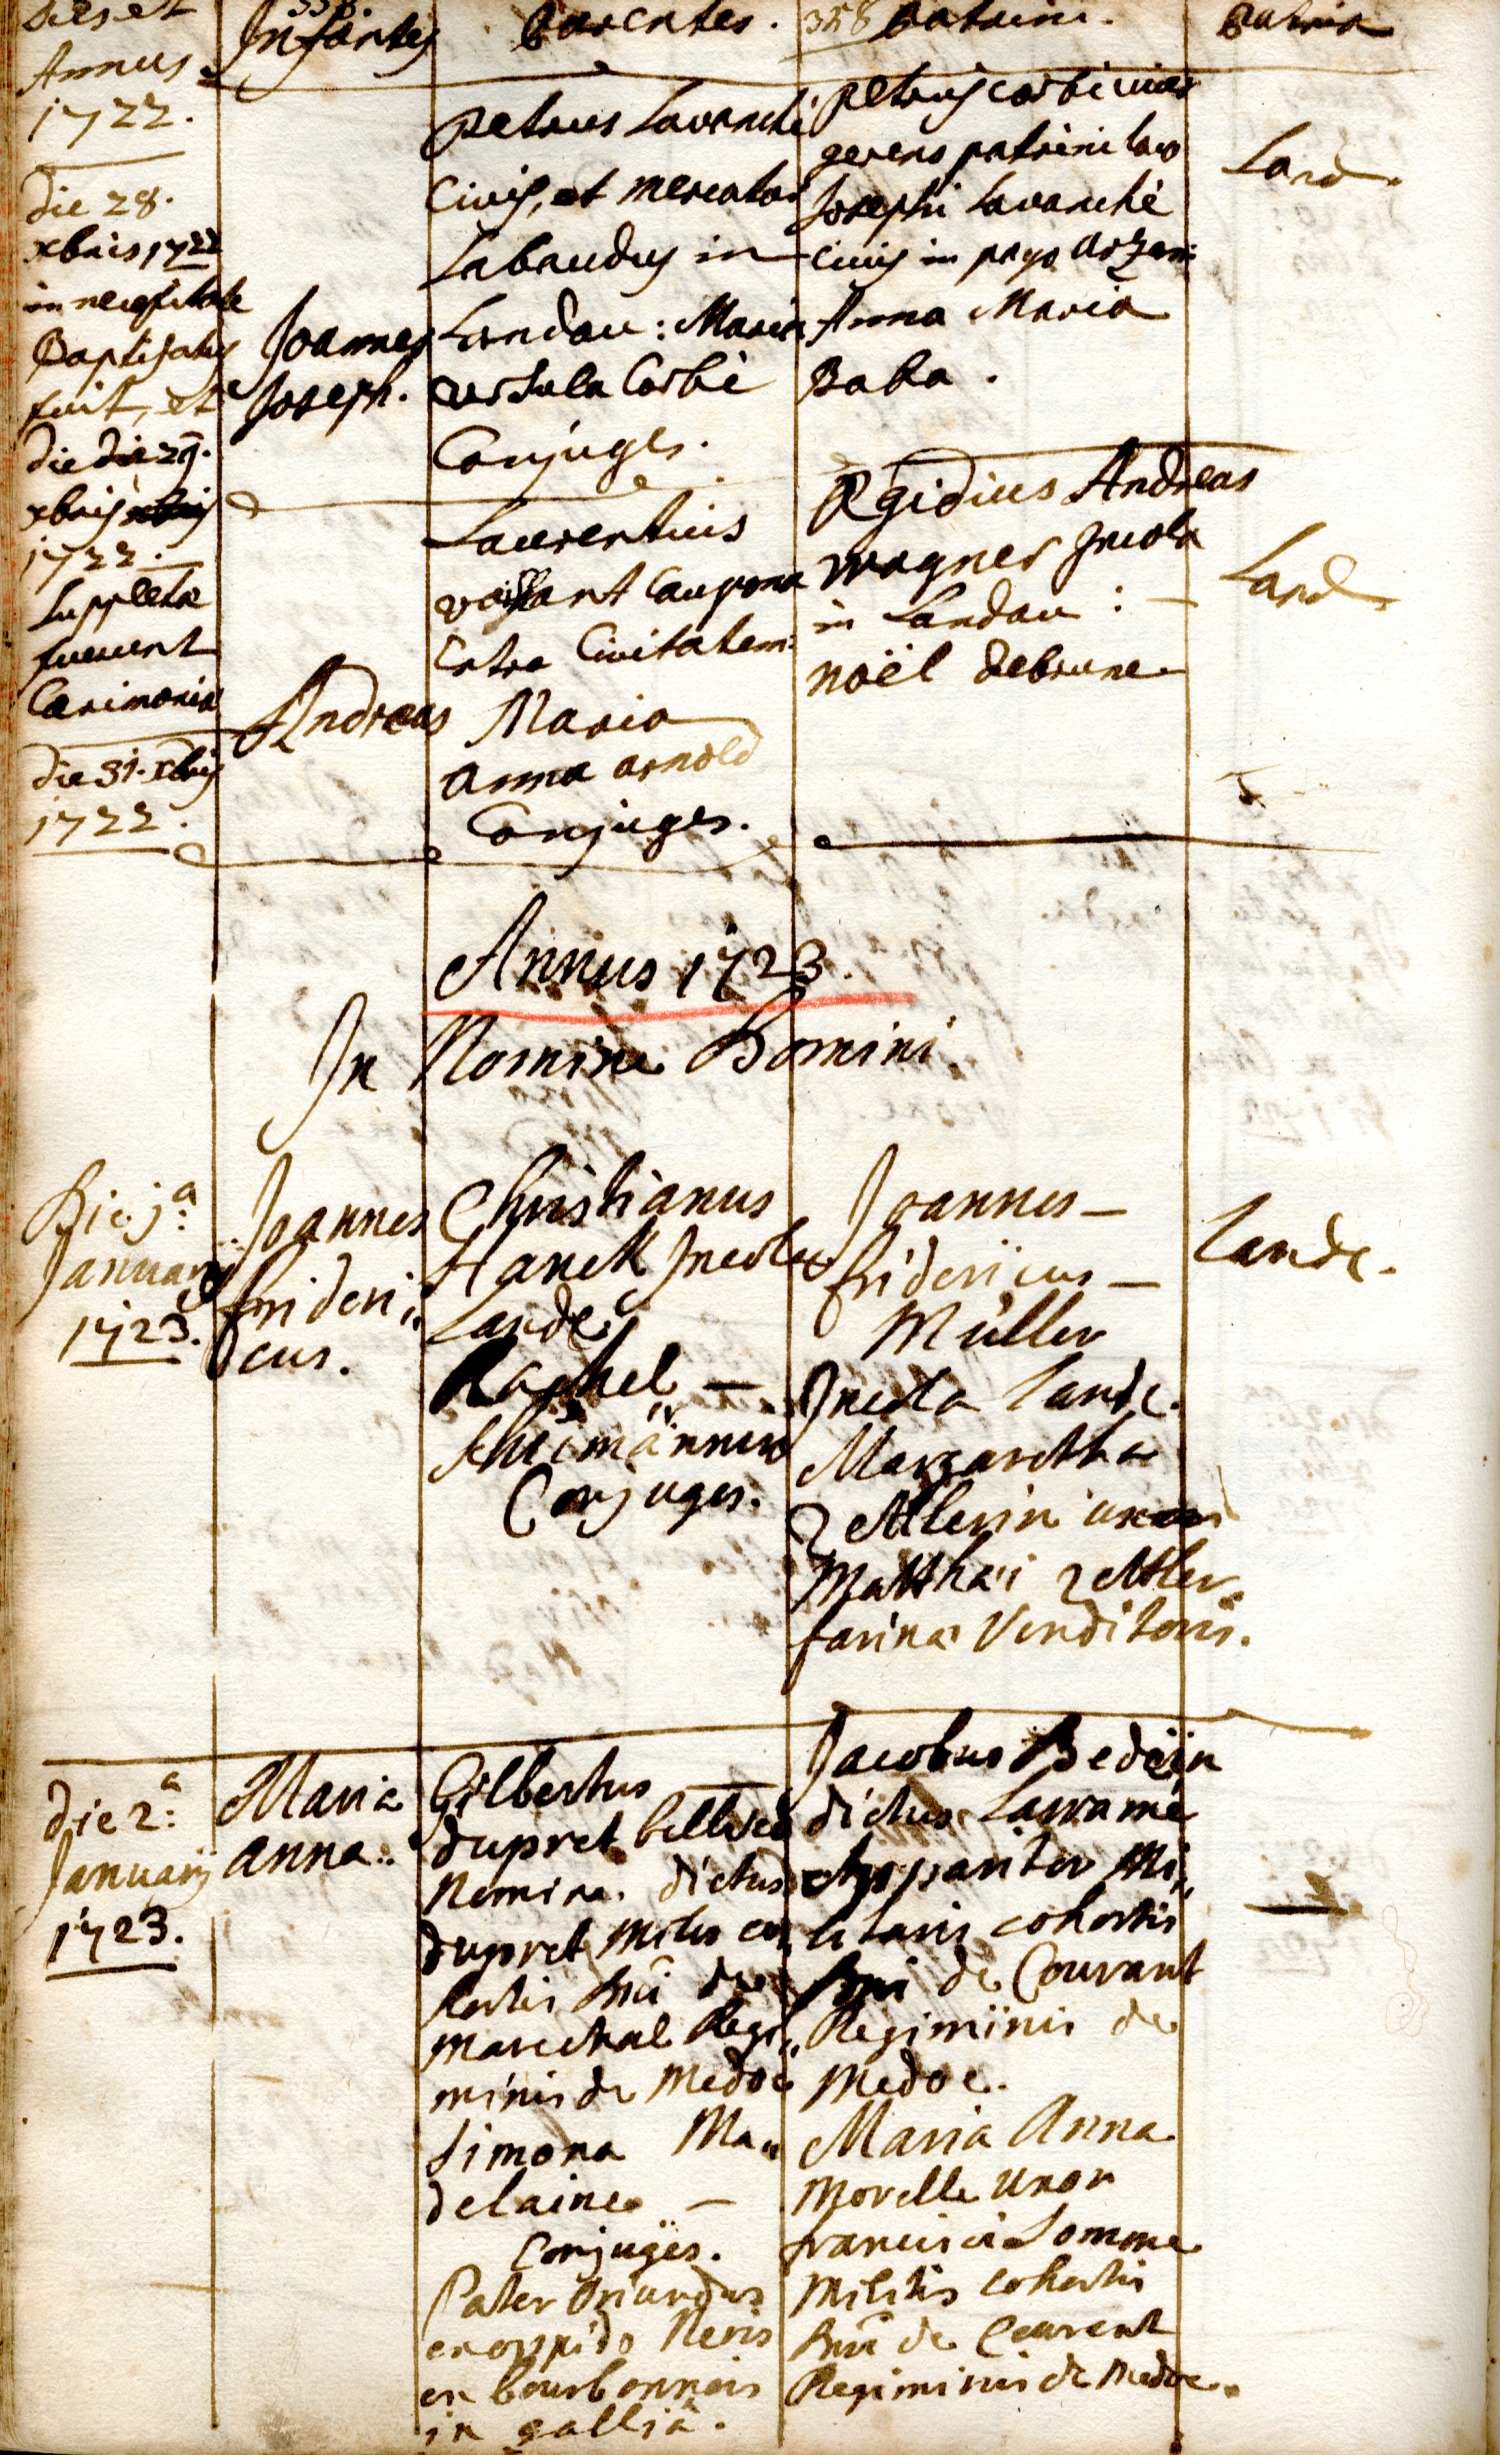 Dies et
Annus
1722.
Infantes
Parentes.
358
Patrini.
Patria
die 28.
xbris 1722
in necessitate
Baptisatus
fuit, et
die die 29.
xbris
1722.
suppletae
fuerunt
Caerimoniae
Joannes
Joseph.
Petrus Lavanché
Civis, et mercator
in
Landau: Maria
ursula Corbé
Conjuges.
Petrus
gerens patrini loco
Josephi Lavanché
civis in pago
Anna Maria
Baba.
Land.
die 31. xbris
1722.
Andreas
Laurentius
Caupona
Extra Civitatem:
Maria
anna arnold
Conjuges.
Ægidius Andreas
Wagner Incola
in Landau: —
noël debrune
Land.
Annus 1723.
In Nomine Domini.
Die 1ª:
Januarij
1723.
Joannes
frideri„
cus.
Christianus
Hanck Incola
Landę
Rachel —
Conjuges.
Joannes —
fridericus —
Müller
Incola Landę.
Margaretha
Zettlerin uxor
Matthæi Zettler
farinæ Venditoris.
Landę.
die 2ª:
Januarij
1723.
Maria
anna..
Gilbertus —
dupret belli seu
Nomine dictus
dupret Miles co„
hortis Dni de
Marechal Regi„
minis de Medoc
Simona Ma„
delaine —
Conjuges.
Pater Oriundus
ex oppido Neris
en bourbonnois
in galliâ.
Jacobus Bedein
dictus Larramé
Apparitor Mi„
litaris cohortis
Dni de Courant
Regiminis de
Medoc.
Maria Anna
Morelle uxor
francisci Lomme
Militis cohortis
Dni de Courent
Regiminis de Medoc.